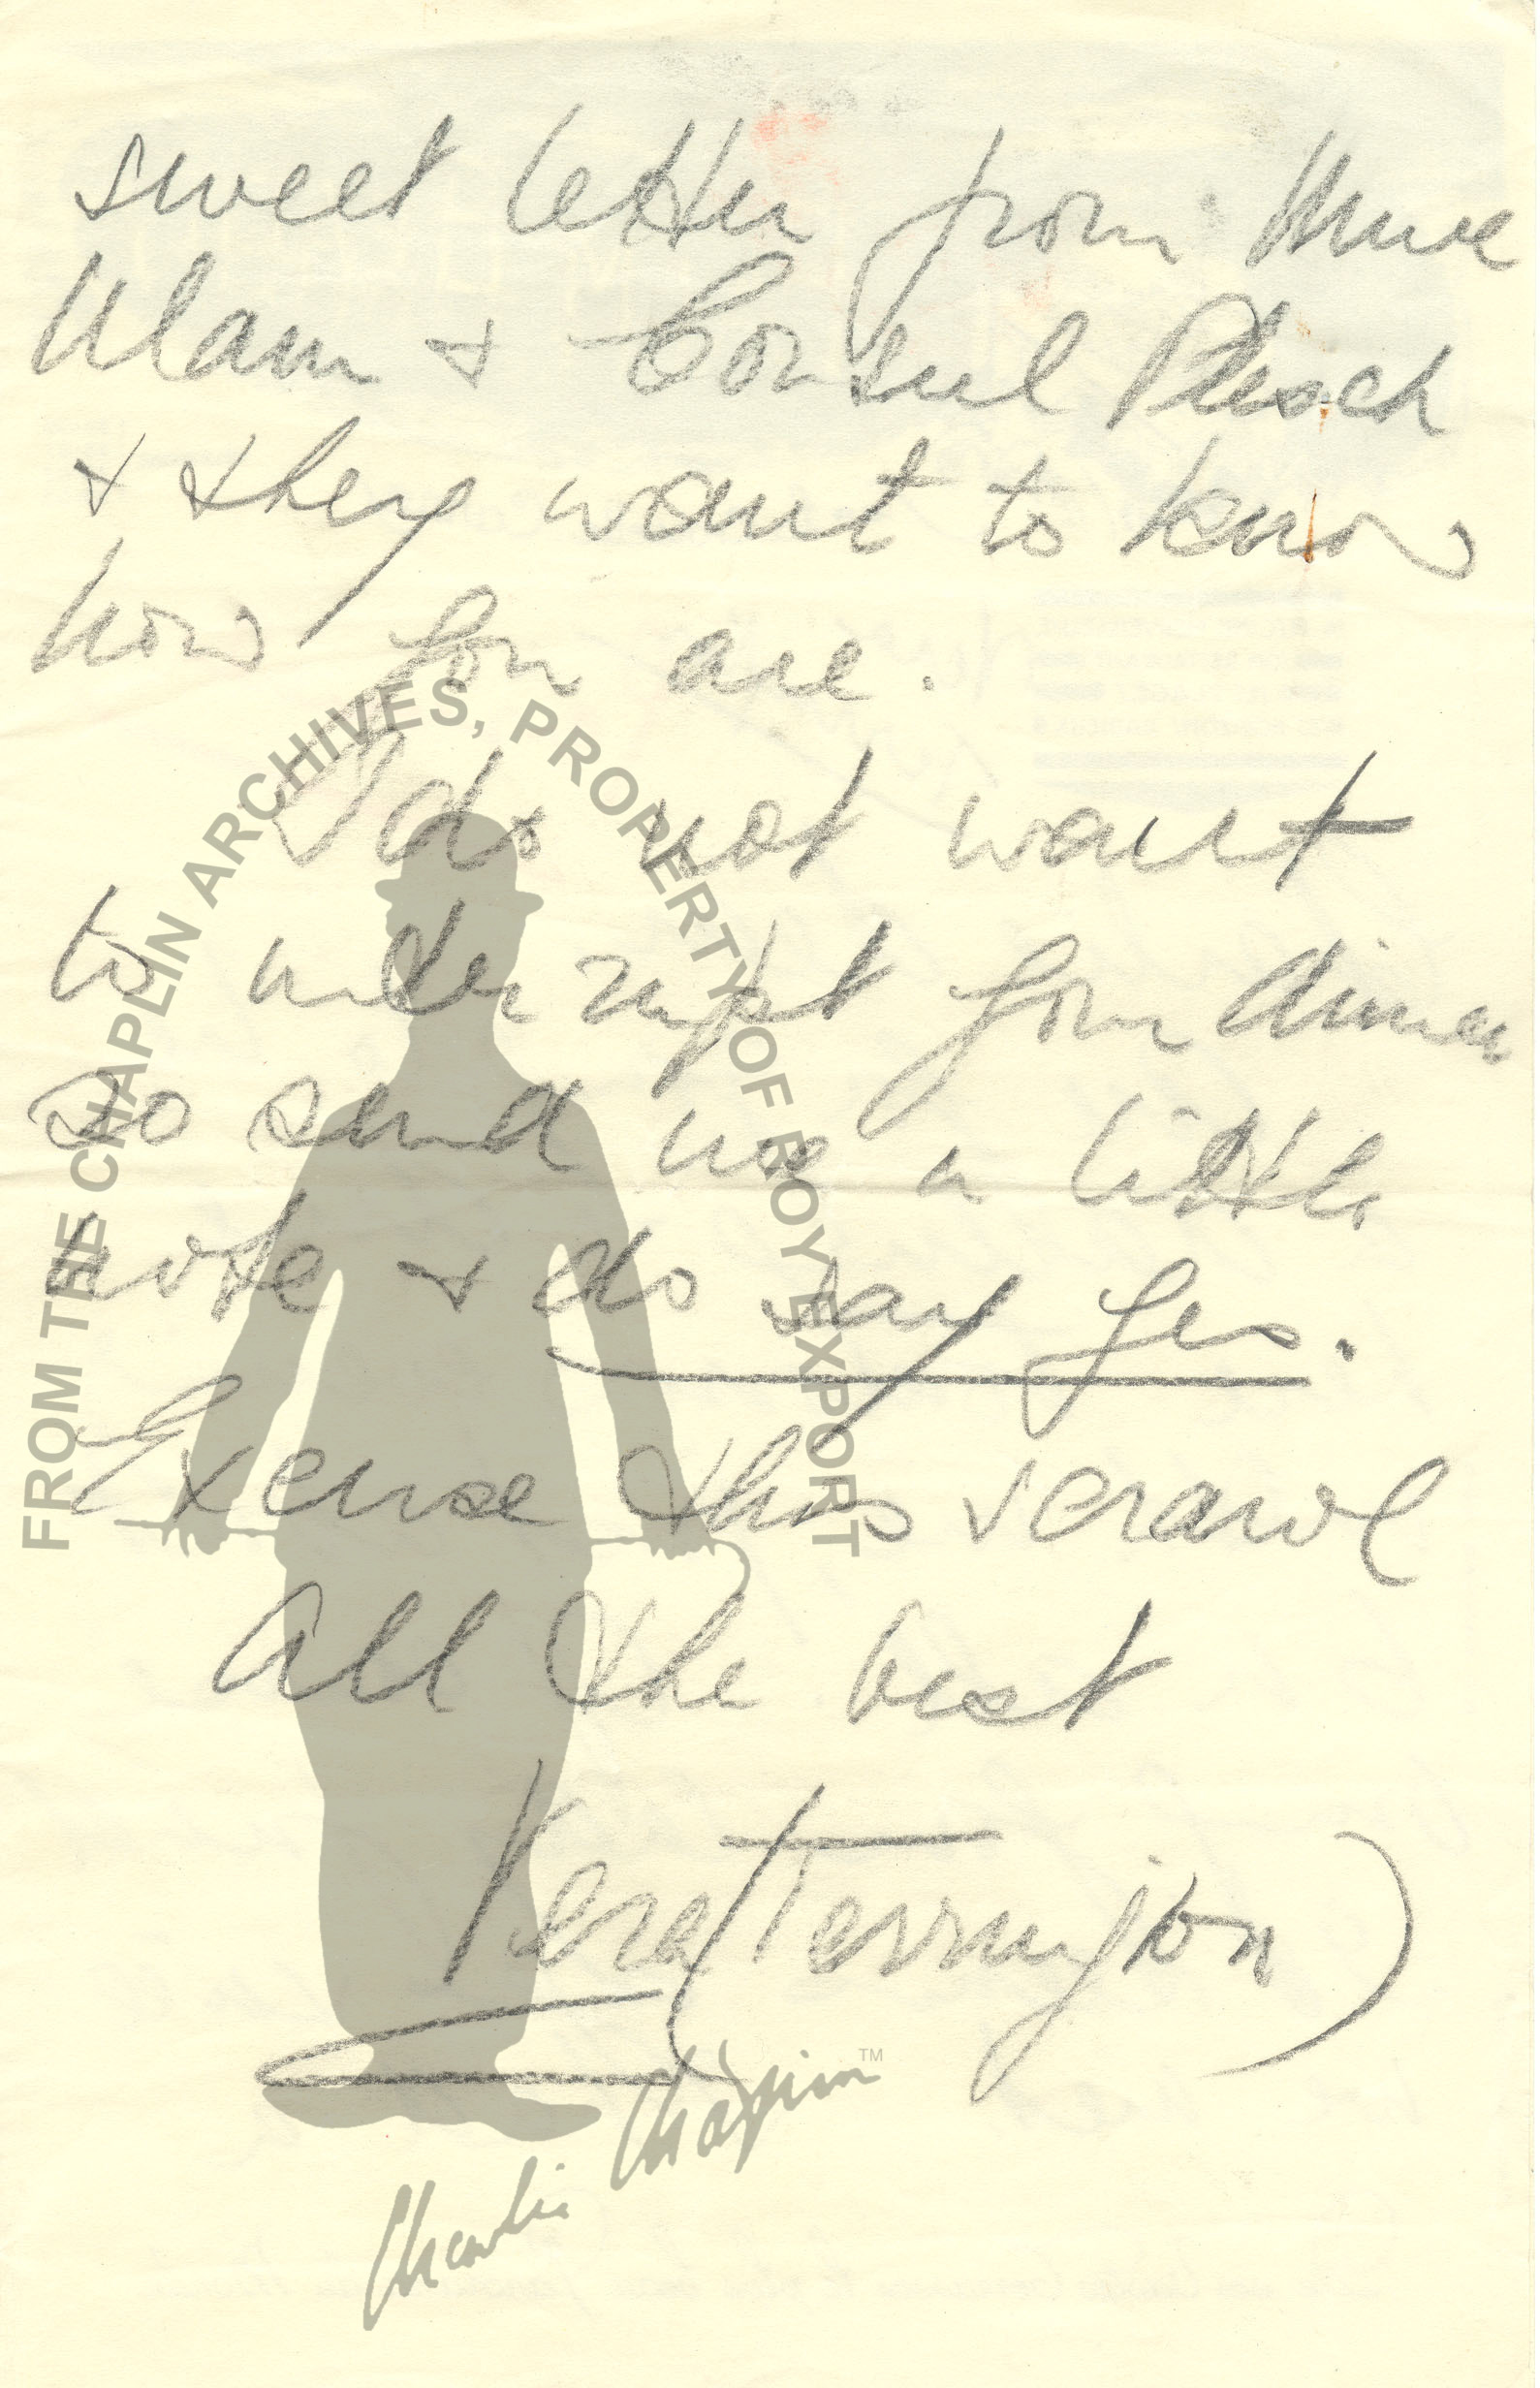 sweet letter from Mme
Ulam & Consul Plesch
& they want to know
how you are.
I do not want
to interrupt your dinner
so send me a little
note & do say yes.
Excuse this scrawl
all the best
Vera (Terrington)
FROM THE CHAPLIN ARCHIVES, PROPERTY OF ROY EXPORT
Charlie Chaplin™